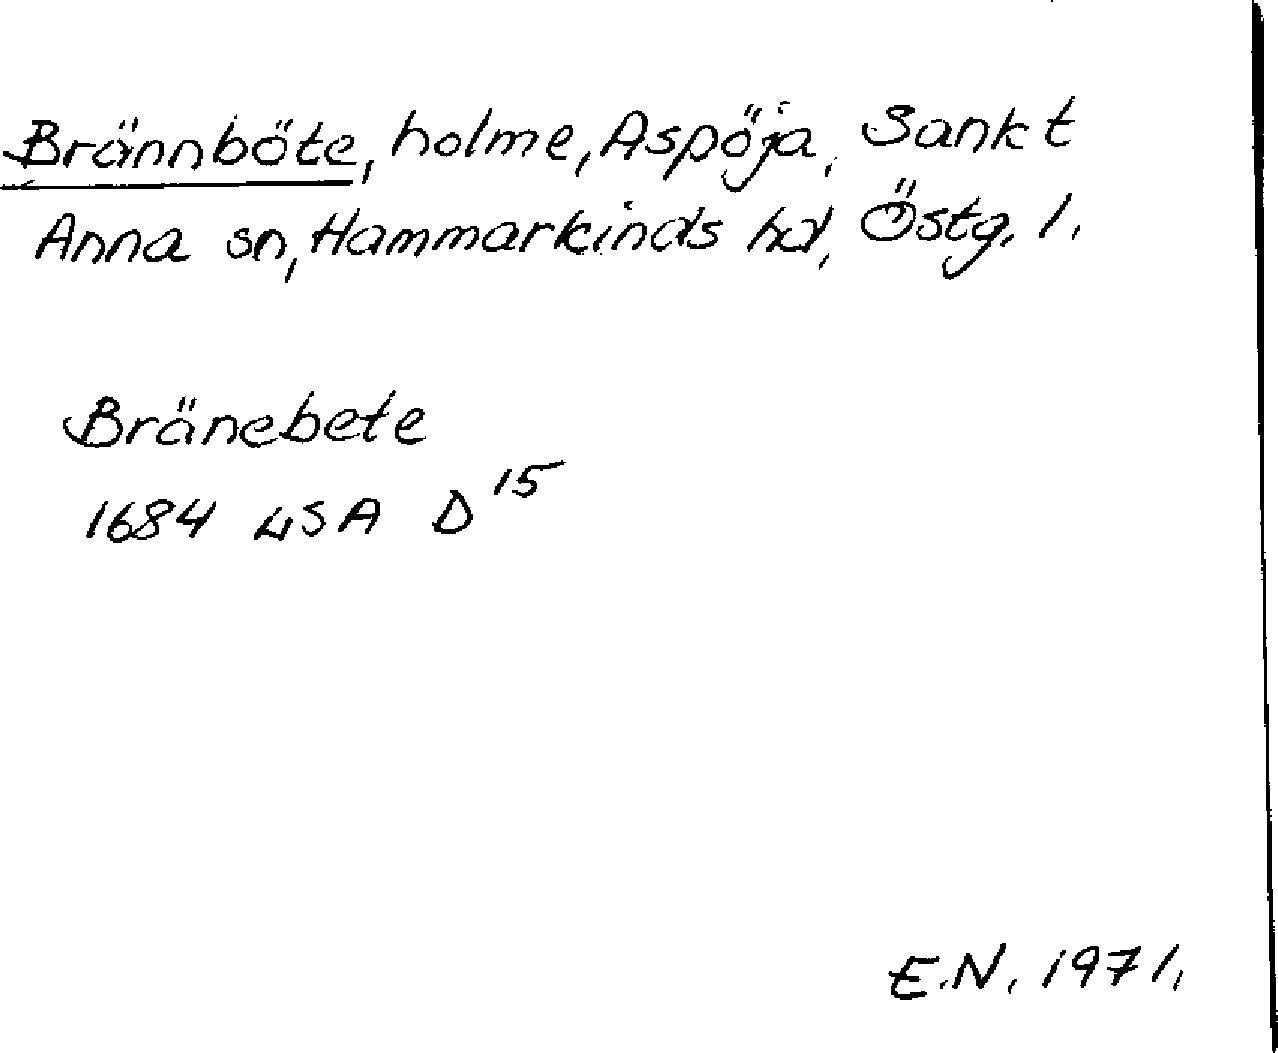 Brännböte, holme, Aspöja, Sankt
Anna sn, Hammarkinds hd, Östg. l.
Bränebete
1684 LSA D 15
E.N. 1971.